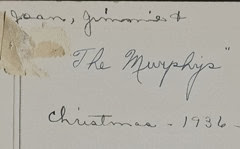 Jean, Jimmie &
"The Murphys"
Christmas - 1936 -